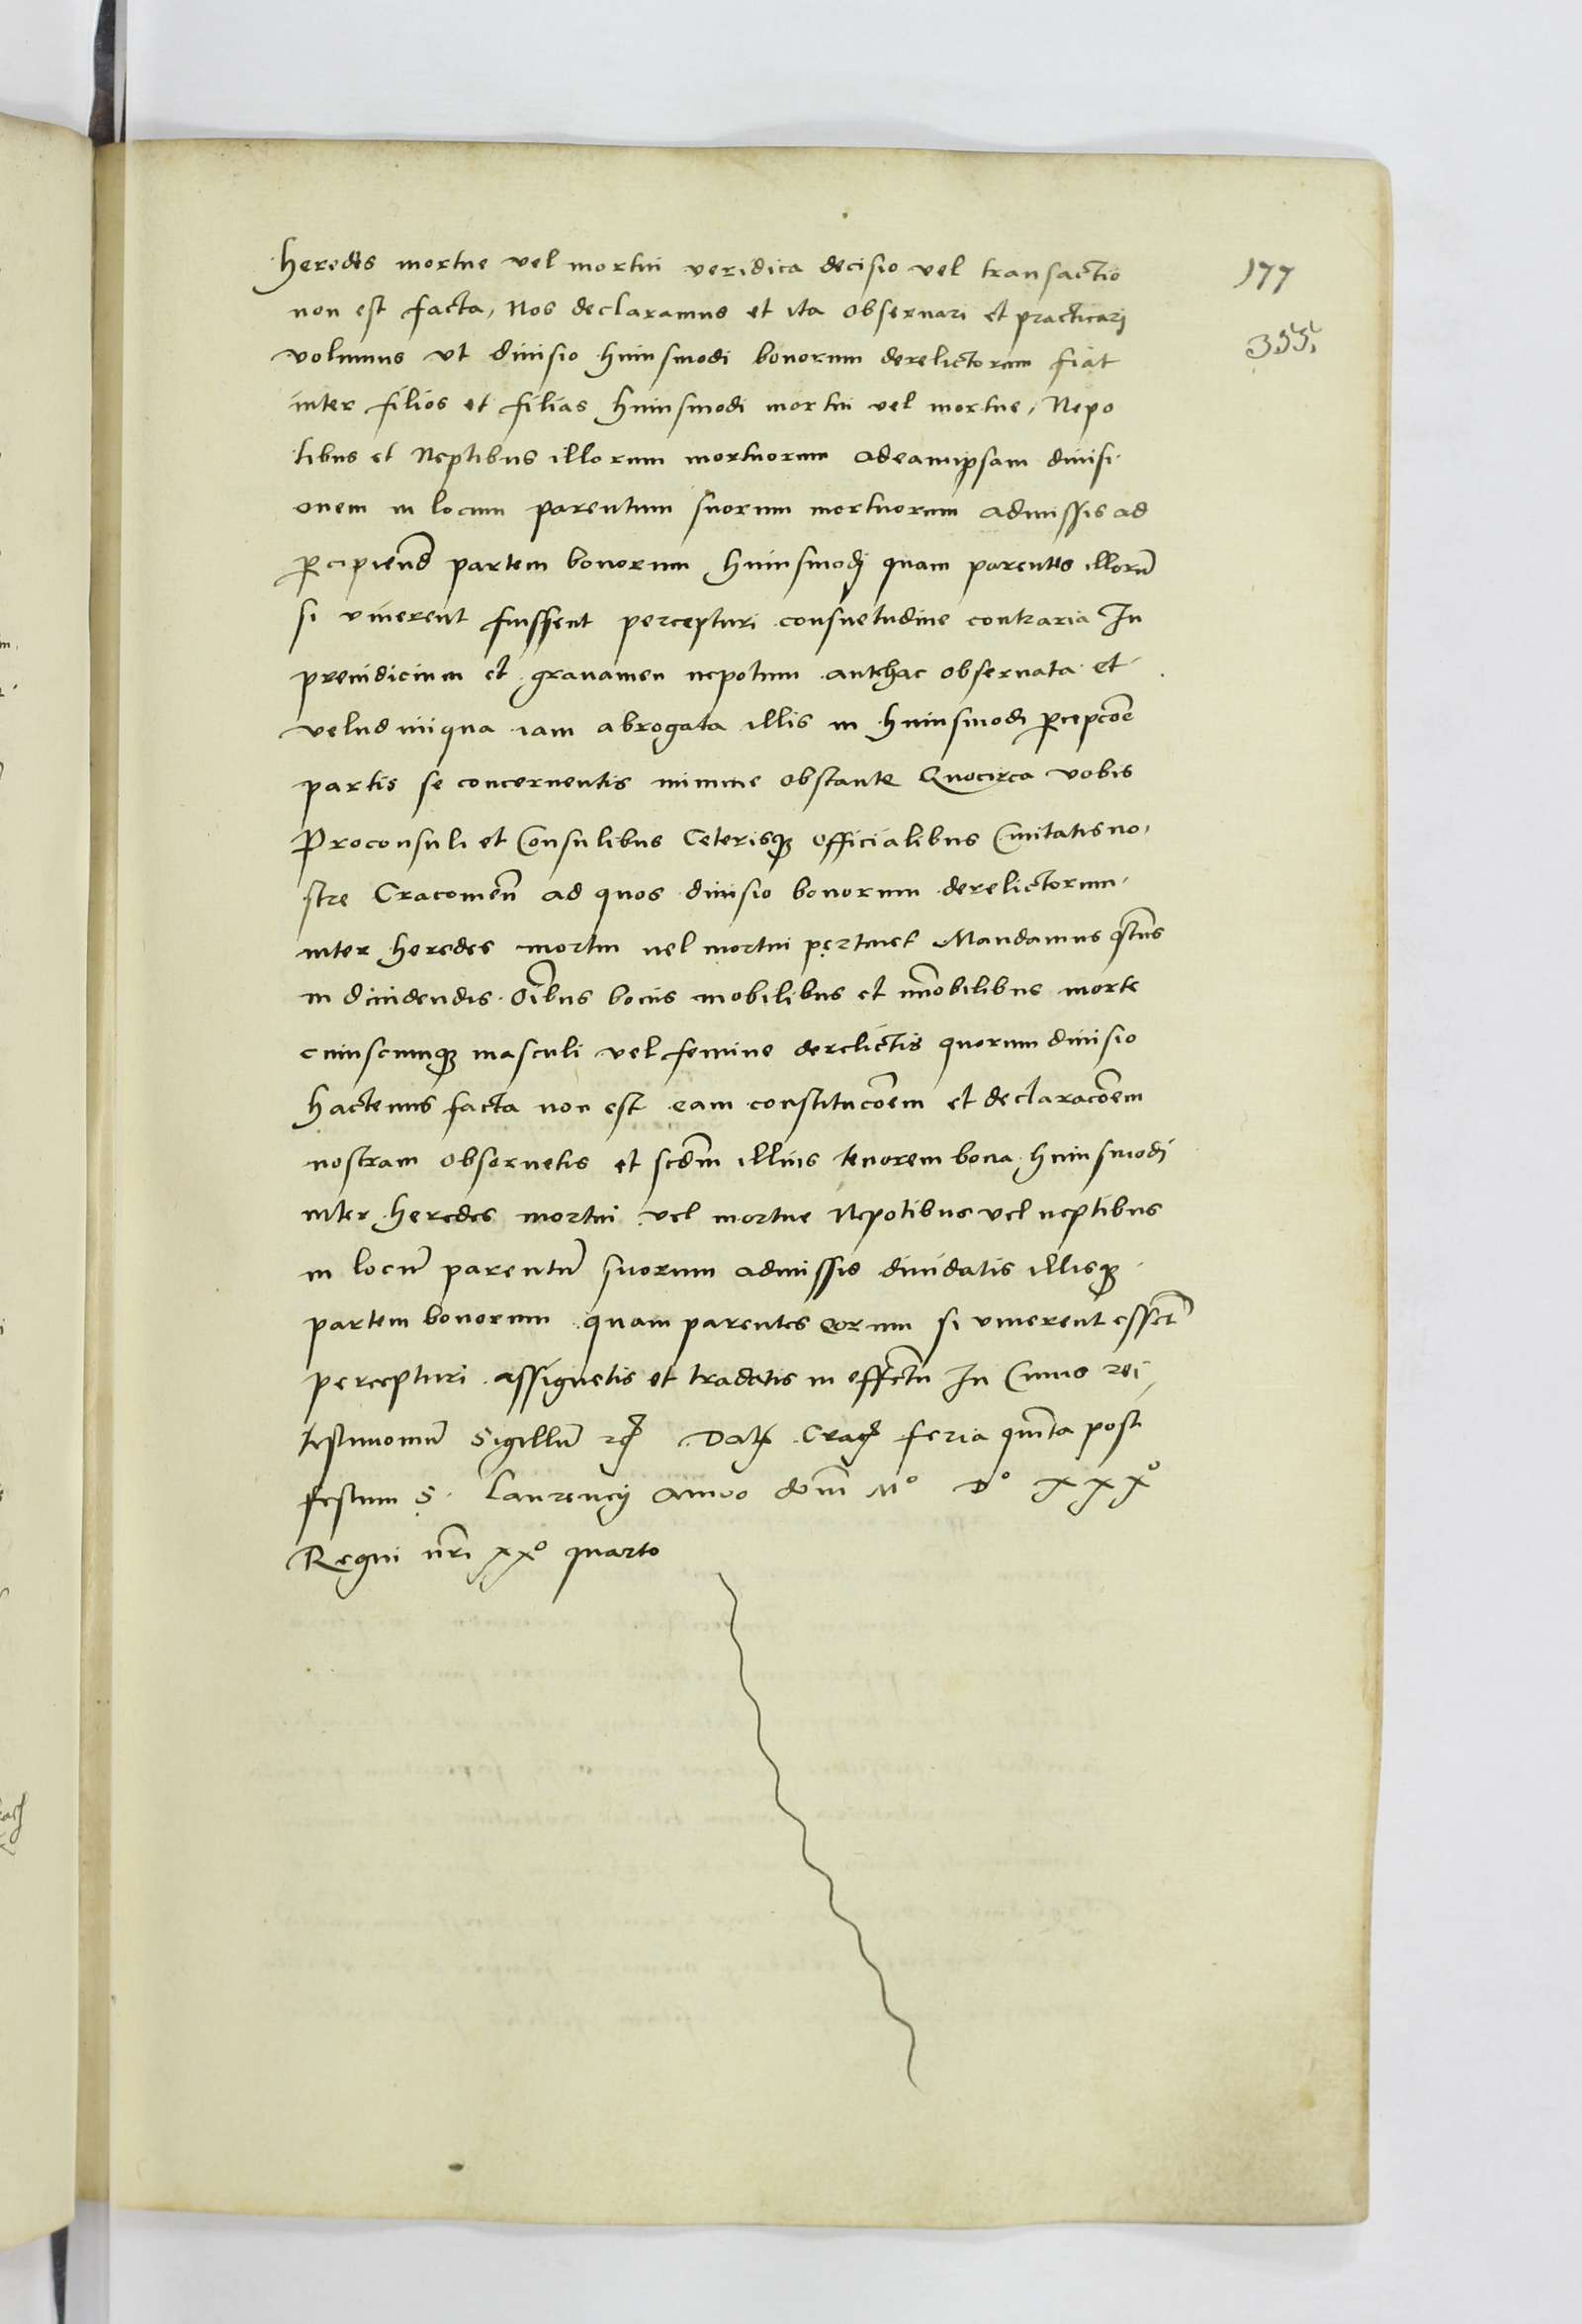 heredes mortue vel mortui veridica decisio vel transactio
177
non est facta, Nos declaramus et ita observari et practicarj
355
volumus ut diuisio huiusmodi bonorum derelictorum fiat
inter filios et filias huiusmodi mortui vel mortue, Nepo
tibus et Neptibus illorum mortuorum adeamipsam diuisi
onem in locum parentum suorum mortuorum admissis ad
p̱cipiend partem bonorum huiusmodj quam parentes illorū
si viuerent fuissent percepturi consuetudine contraria In
preiudicium et grauamen nepotum antehac obseruata et
velud iniqua iam abrogata illis in huiusmodi p̱cepcōe
partis se concernentis minime obstante Quocirca vobis
Proconsuli et Consulibus Ceterisqꝫ officialibus Ciuitatis no,
stre Cracouień ad quos diuisio bonorum derelictorum
inter heredes mortui uel mortui pertinet Mandamus q̄tus
in diuidendis oībus bonis mobilibus et īmobilibus morte
cuiuscumqꝫ masculi vel femine derelictis quorum diuisio
hactenus facta non est eam constitucōem et declaracōem
nostram obseruetis et scdm̄ illius tenorem bona huiusmodi
inter heredes mortui vel mortue Nepotibus vel neptibus
in locū parentū suorum admissis diuidatis illisqꝫ
partem bonorum quam parentes eorum si viuerent essent
percepturi assignetis et tradatis in effectū In Cuius rei
testimoniū Sigillū Datꝫ Cracꝫ feria quīta post
festum S. Laurencij Anno dom̄ Mº Dº XXXº
Regni nr̄i xxº quarto